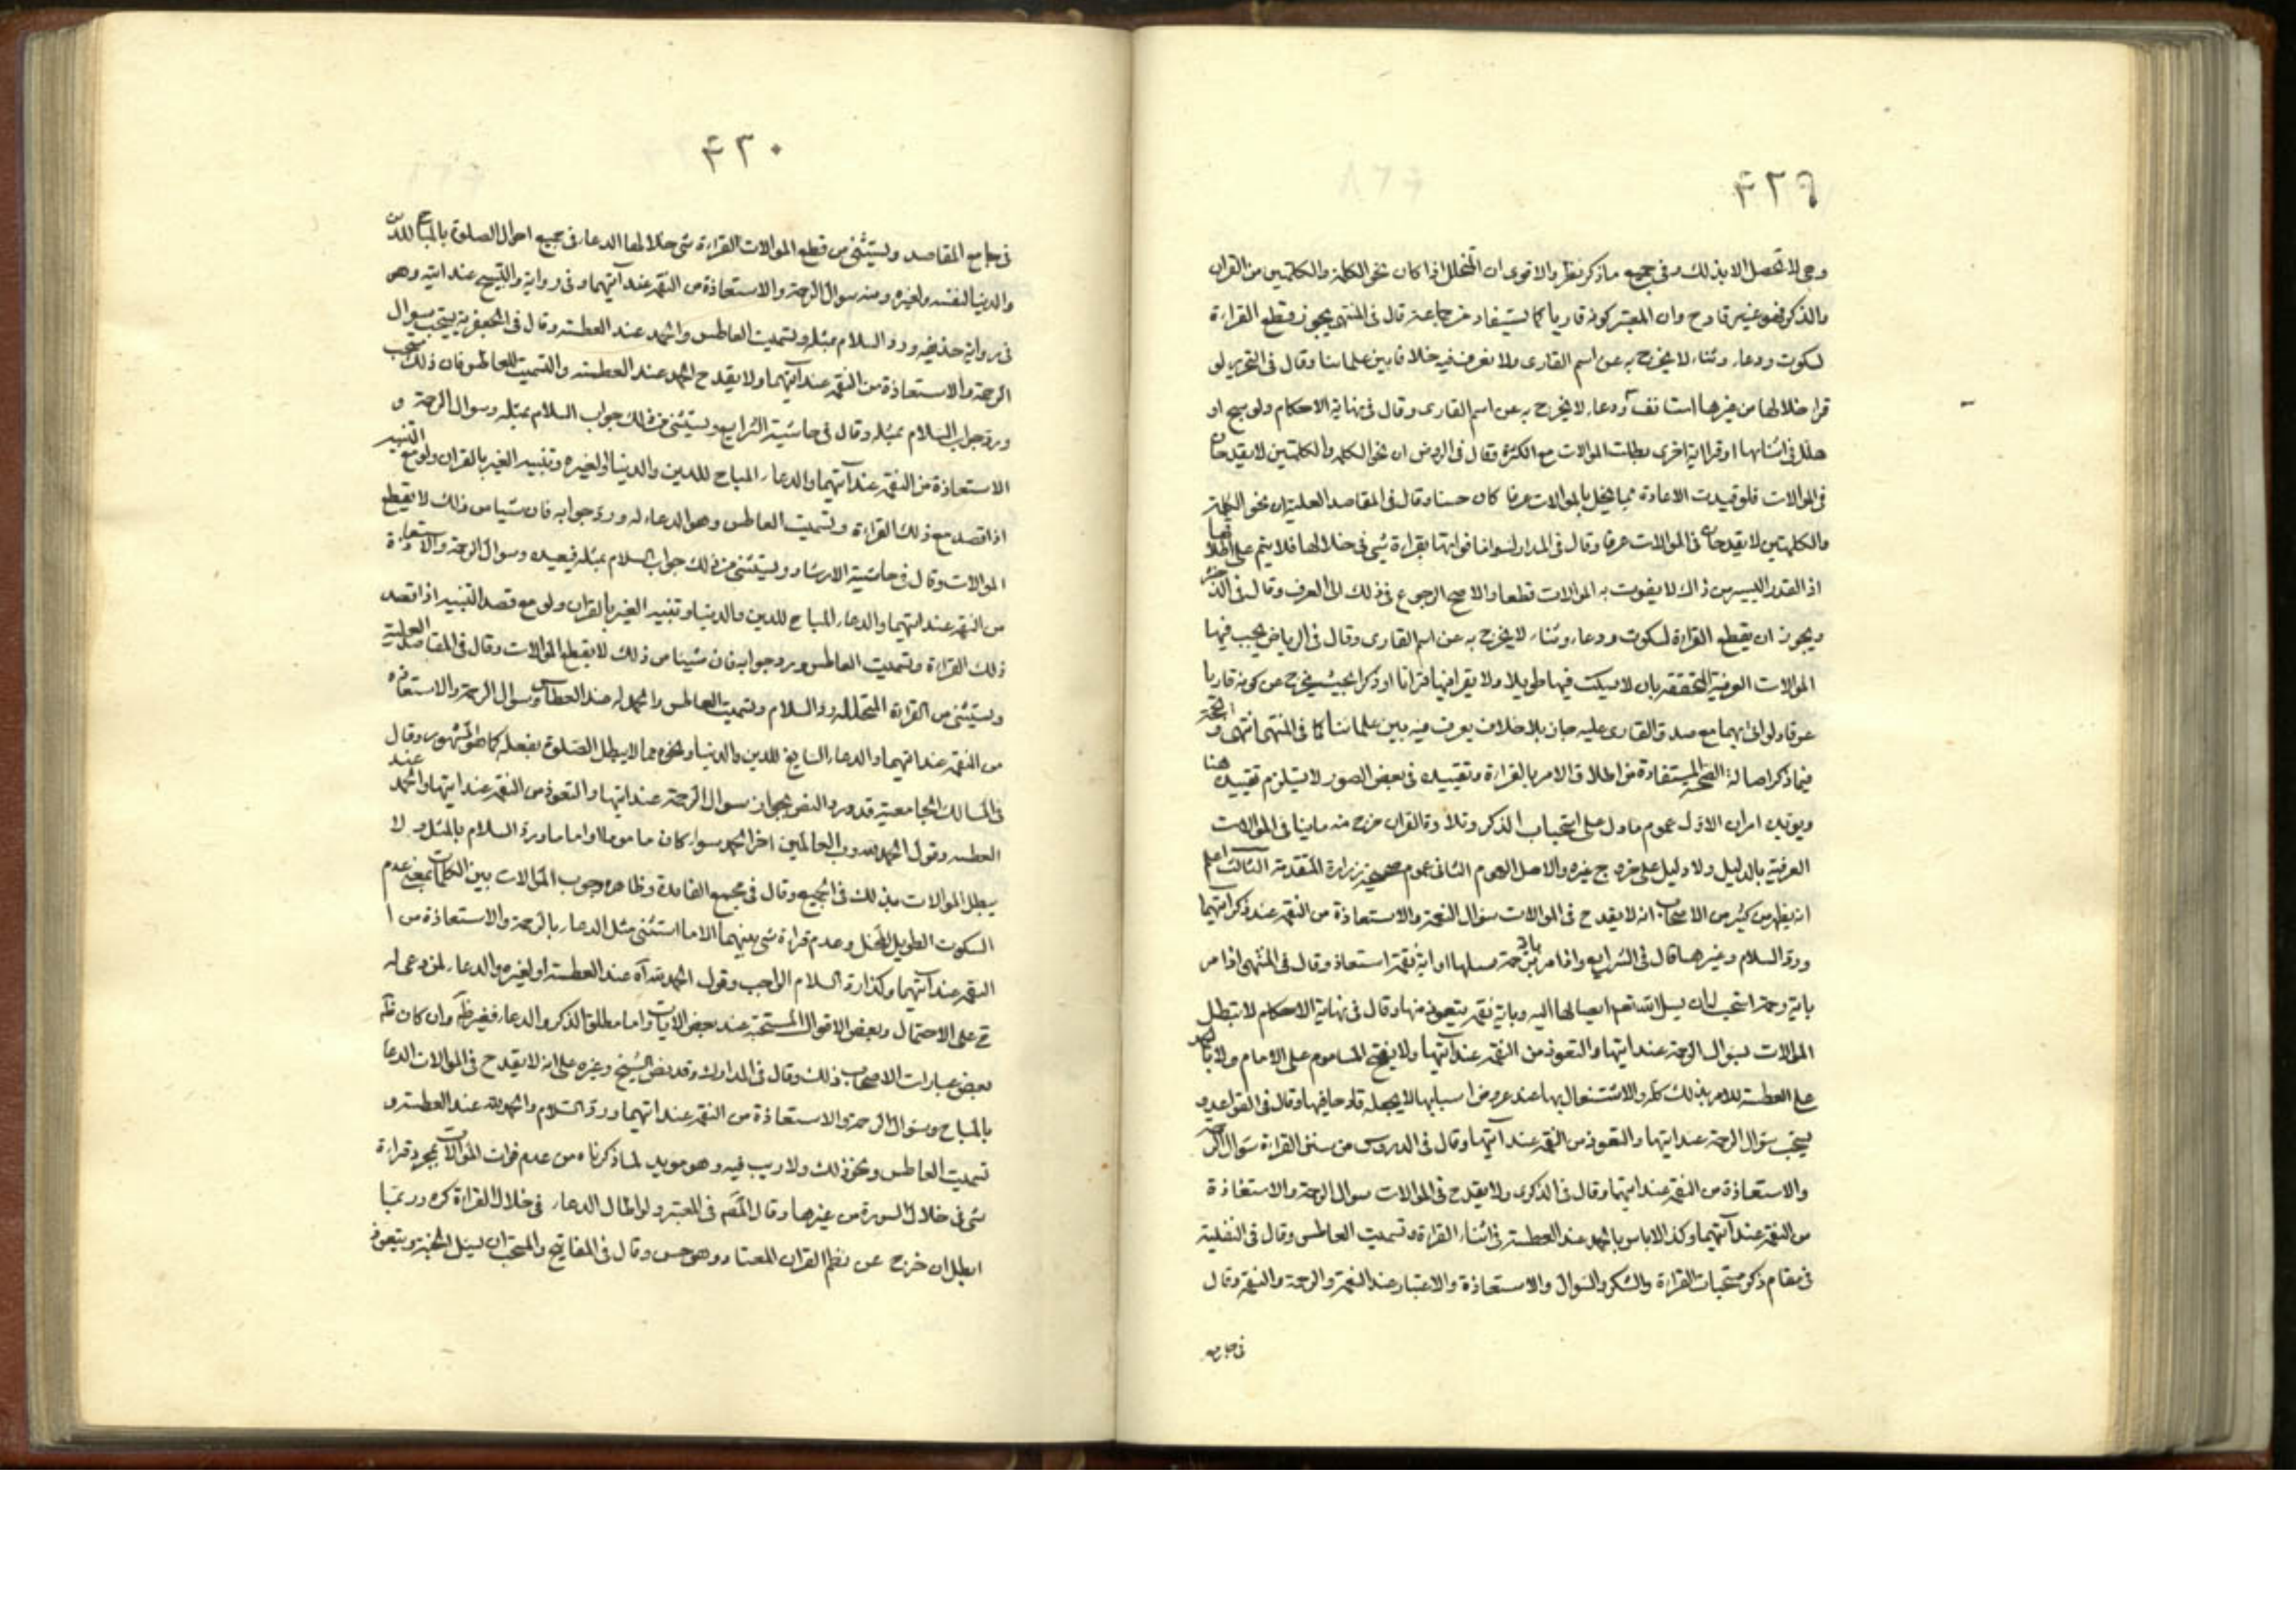 ۴۲۹
وهي لا تحصل الا بذلك وفي جميع ما ذكر نظر والاقوى ان المتخلل اذا كان نحو الكلمة والكلمتين من القران
والذكر فهو غير قادح وان المعتبر كونه قاريا كما يستفاد من جماعة قال في المنتهى يجوز قطع القراءة
لسكوت ودعاء وثناء لا يخرج به عن اسم القارى ولا نعرف فيه خلافا بين علمائنا وقال في التحرير لو
قرا خلالها من غيرها استانف ودعاء لا يخرج به عن اسم القارى وقال في نهاية الاحكام ولو سبح او
هلل في اثنائها او قرا اية اخرى بطلت الموالات مع الكثرة وقال في الروض ان نحو الكلمة والكلمتين لا يقدحان
في الموالات فلو قيدت الاعادة بما يخل بالموالات عرفا كان حسنا وقال في المقاصد العلية ان نحو الكلمة
والكلمتين لا يقدحان في الموالات عرفا وقال في المدارك اما فواتها بقراءة شئ في خلالها فلا يتم على اطلاقها
اذ القدر اليسير من ذلك لا يفوت به الموالات قطعا والاصح الرجوع في ذلك الى العرف وقال في الذخيرة
ويجوز ان يقطع القراءة لسكوت ودعاء وثناء لا يخرج به عن اسم القارى وقال في الرياض يجب فيها
الموالات العرفية المتحققة بان لا يسكت فيها طويلا ولا يقرا فيها قرانا او ذكرا بحيث يخرج عن كونه قاريا
عرفا ولو اتى بهما مع صدق القارى عليه جاز بلا خلاف يعرف فيه بين علمائنا كما في المنتهى انتهى و الحجة
فيما ذكر اصالة الصحة المستفادة من اطلاق الامر بالقراءة وتقييده في بعض الصور لا يستلزم تقييده هنا
ويؤيده امران الاول عموم ما دل على استحباب الذكر وتلاوة القران خرج منه ما ينافى الموالات
العرفية بالدليل ولا دليل على خروج غيره والاصل العموم الثانى عموم صحيحة زرارة المتقدمة الثالث اعلم
انه يظهر من كثير من الاصحاب انه لا يقدح في الموالات سؤال الرحمة والاستعاذة من النقمة عند ذكر ايتيهما
ورد السلام وغيرها قال في الشرايع واذا مر باية رحمة سالها او اية نقمة استعاذ وقال في المنتهى اذا مر
باية رحمة استحب له ان يسال الله تعالى ايصالها اليه وباية نقمة يتعوذ منها وقال في نهاية الاحكام لا تبطل
الموالات بسؤال الرحمة عند ايتها والتعوذ من النقمة عند ايتها ولا بفتح الماموم على الامام ولا بالحمد
على العطسة للامر بذلك كله والاشتغال بها عند عروض اسبابها لا يجعله قادحا فيها وقال في القواعد و
يستحب سؤال الرحمة عند ايتها والتعوذ من النقمة عند ايتها وقال في الدروس من سنن القراءة سؤال الرحمة
والاستعاذة من النقمة عند ايتيهما وقال في الذكرى ولا يقدح في الموالات سؤال الرحمة والاستعاذة
من النقمة عند ايتيهما وكذا لا باس بالحمد عند العطسة في اثناء القراءة وتسميت العاطس وقال في النفلية
في مقام ذكر مستحبات القراءة والشكر والسؤال والاستعاذة والاعتبار عند النعمة والرحمة والنقمة وقال
في جامع
۴۳۰
في جامع المقاصد ويستثنى من قطع الموالات القراءة شئ خلالها الدعاء في جميع احوال الصلوة بالمباح للدين
والدنيا لنفسه ولغيره ومنه سوال الرحمة والاستعاذة من النقمة عند ايتيهما وفي رواية والتسبيح عند ايته وهو
في رواية حذيفة ورد السلام بمثله وتسميت العاطس والحمد عند العطسة وقال في الجعفرية يستحب سوال
الرحمة والاستعاذة من النقمة عند ايتيهما ولا يقدح الحمد عند العطسة والتسميت للعاطس فان ذلك مستحب
ورد جواب السلام بمثله وقال في حاشية الشرايع ويستثنى من ذلك جواب السلام بمثله وسوال الرحمة و
الاستعاذة من النقمة عند ايتيهما والدعاء المباح للدين والدنيا او لغيره وتنبيه الغير بالقران ولو مع التنبيه
اذا قصد مع ذلك القراءة وتسميت العاطس وهو الدعاء له ورد جوابه فان شيئا من ذلك لا يقطع
الموالات وقال في حاشية الارشاد ويستثنى من ذلك جواب السلام بمثله فيعيده وسوال الرحمة والاستعاذة
من النقمة عند ايتيهما والدعاء المباح للدين والدنيا وتنبيه الغير بالقران ولو مع قصد التنبيه اذا قصد
ذلك القراءة وتسميت العاطس ورد جوابه فان شيئا من ذلك لا يقطع الموالات وقال في المقاصد العلية
ويستثنى من القراءة المتخللة رد السلام وتسميت العاطس والحمد له عند العطاس وسوال الرحمة والاستعاذة
من النقمة عند ايتيهما والدعاء السايغ للدين والدنيا ونحوه مما لا يبطل الصلوة بفعله كما هو المشهور وقال
في المسالك الجامعية قد ورد النص بجواز سوال الرحمة عند ايتها والتعوذ من النقمة عند ايتها والحمد عند
العطسة وقول الحمد لله رب العالمين اخر الحمد سواء كان ماموما او اماما ورد السلام بالمثل و لا
يبطل الموالات بذلك في الجميع وقال في مجمع الفايدة وظاهره وجوب الموالات بين الكلمات بمعنى عدم
السكوت الطويل المخل وعدم قراءة شئ بينهما الا ما استثنى مثل الدعاء بالرحمة والاستعاذة من ا
النقمة عند ايتيهما وكذا رد السلام الواجب وقول الحمد لله اه عند العطسة او لغيره والدعاء لمن دعى له
على الاحتمال وبعض الاقوال المستحبة عند بعض الايات واما مطلق الذكر والدعاء فغير ظ وان كان ظ
بعض عبارات الاصحاب ذلك وقال في المدارك وقد نص الشيخ وغيره على انه لا يقدح في الموالات الدعا
بالمباح وسؤال الرحمة والاستعاذة من النقمة عند ايتيهما ورد السلام والحمد لله عند العطسة و
تسميت العاطس ونحو ذلك ولا ريب فيه وهو مؤيد لما ذكرناه من عدم فوات الموالات بمجرد قراءة
شئ في خلال السورة من غيرها وقال المصنف في المعتبر ولو اطال الدعاء في خلال القراءة كره وربما
ابطل ان خرج عن نظم القران المعتاد وهو حسن وقال في المفاتيح والمستحب ان يسئل الجنة ويتعوذ